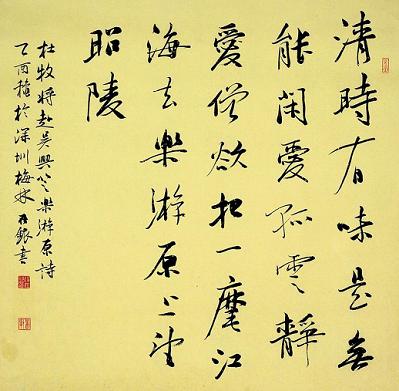 清時有味是無
能閑愛孤雲靜
愛僧欲把一麾江
海去樂游原上望
昭陵
杜牧將赴吳興登樂游原詩
乙酉穐於深圳梅林 銀書